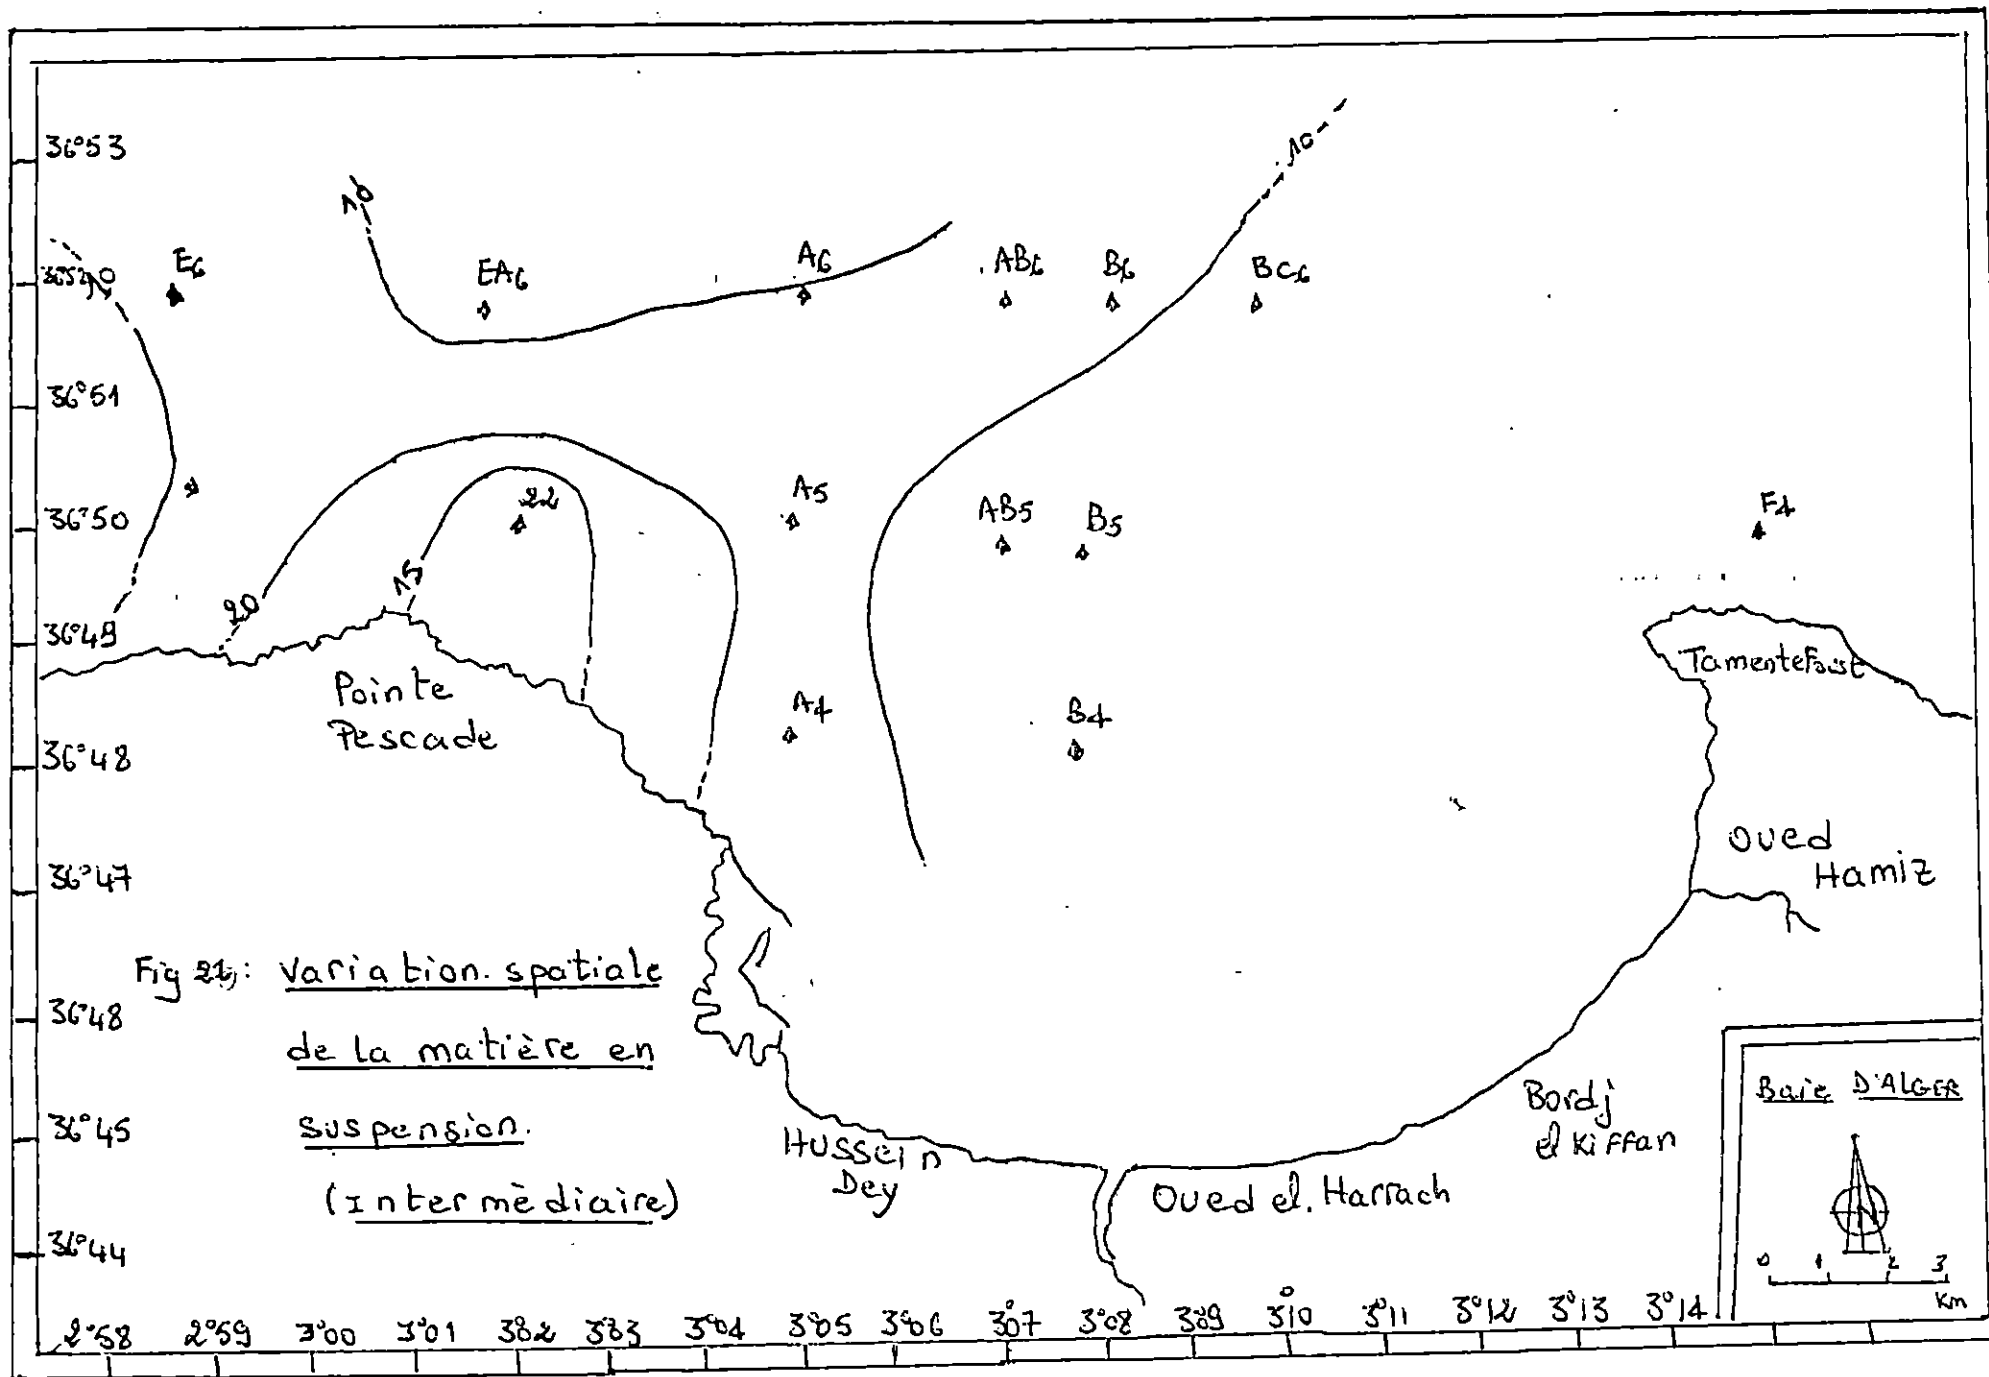 36°53
10
10
E6
EA6
A6
AB6
B6
BC6
36°51
22
A5
AB5
B5
F4
36°50
15
20
36°49
Tamentefoust
Pointe
Pescade
A4
B4
36°48
Oued
Hamiz
36°47
Fig 21: Variation spatiale
de la matière en
suspension.
(Intermèdiaire)
36°48
36°45
36°44
Hussein
Dey
Oued el. Harrach
Bordj
el Kiffan
Baie D'ALGER
0 1 2 3
Km
2°58 2°59 3°00 3°01 3°82 3°83 3°04 3°05 3°06 3°07 3°08 3°09 3°10 3°11 3°12 3°13 3°14